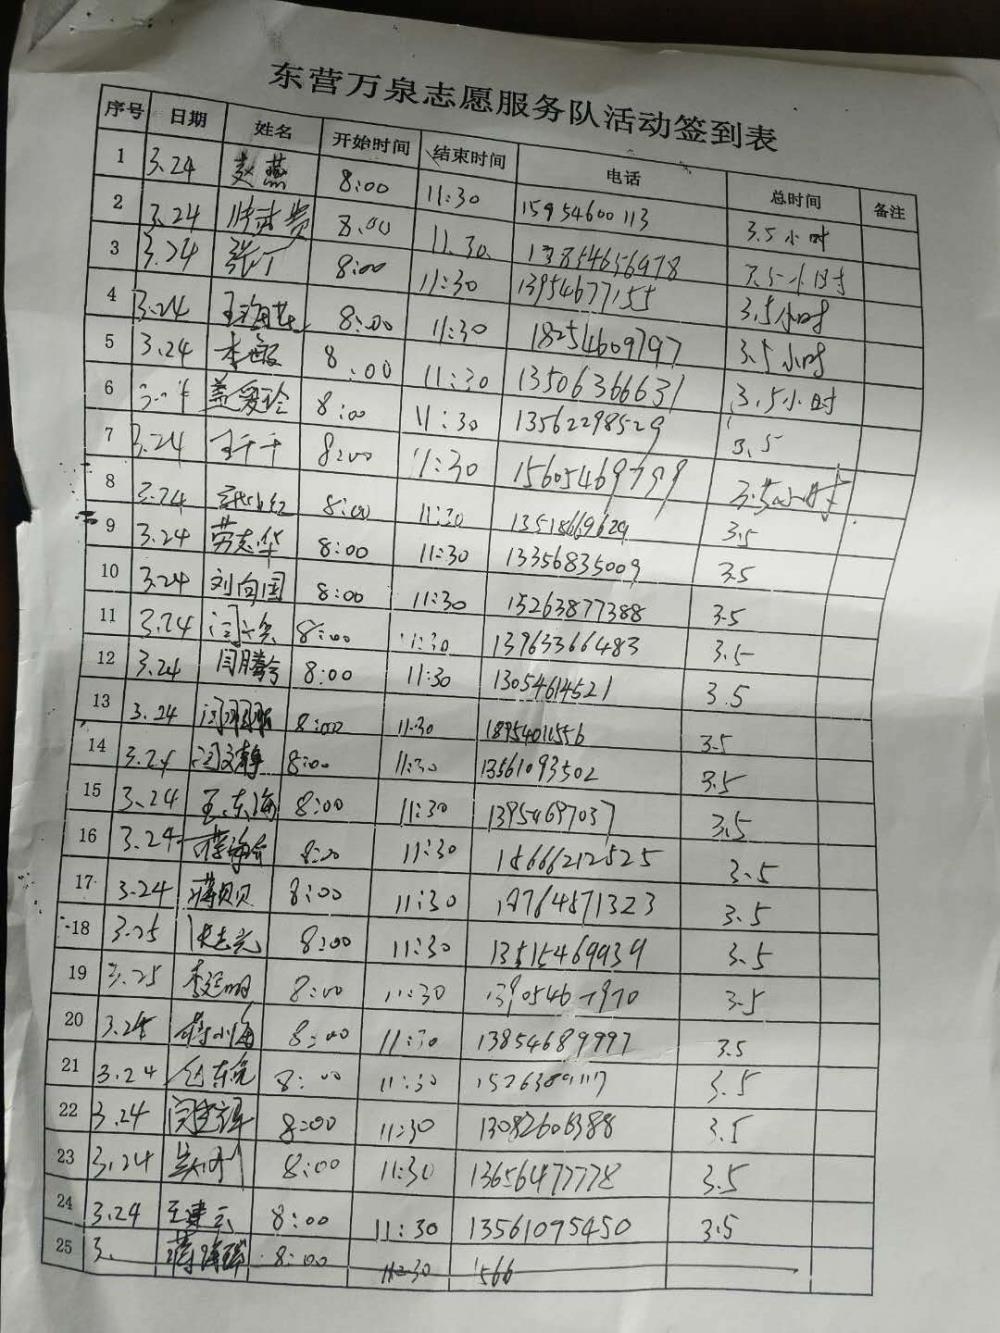 东营万泉志愿服务队活动签到表
序号 日期 姓名 开始时间 结束时间 电话 总时间 备注
1 3.24 赵燕 8:00 11:30 15954600113 3.5小时
2 3.24 8:00 11.30 13854656978 3.5小时
3 3.24 张丁 8:00 11:30 13954677155 3.5小时
4 3.24 8:00 11:30 18254609797 3.5小时
5 3.24 李敏 8:00 11:30 13506366631 3.5小时
6 盖爱玲 8:00 11:30 13562298529 3.5
7 3.24 王千千 8:00 11:30 15605469799 3.5小时
8 3.24 8:00 11:30 13518669629 3.5
9 3.24 劳志华 8:00 11:30 13356835009 3.5
10 3.24 刘向国 8:00 11:30 15263877388 3.5
11 3.24 8:00 11:30 13963366483 3.5
12 3.24 闫腾 8:00 11:30 13054614521 3.5
13 3.24 8:00 11:30 3.5
14 3.24 闫文静 8:00 11:30 13561093502 3.5
15 3.24 王东海 8:00 11:30 13954697037 3.5
16 3.24 8:00 11:30 18666212525 3.5
17 3.24 蒋贝贝 8:00 11:30 3.5
18 3.25 张志光 8:00 11:30 13515469939 3.5
19 3.25 李延明 8:00 11:30 3.5
20 3.24 蒋小海 8:00 11:30 13854689997 3.5
21 3.24 8:00 11:30 3.5
22 3.24 8:00 11:30 13082606388 3.5
23 3.24 8:00 11:30 13656477778 3.5
24 3.24 王建云 8:00 11:30 13561095450 3.5
25 3. 8:00 11:30 566